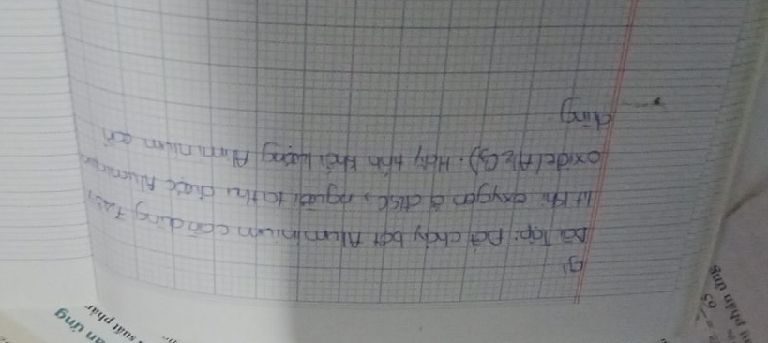 Bài Tập: Đốt cháy bột Aluminium cần dùng
lít khí oxygen ở đktc, người ta thu được Aluminium
oxide (Al2O3). Hãy tính khối lượng Aluminium cần
dùng
ản ứng
suất phản
phản ứng